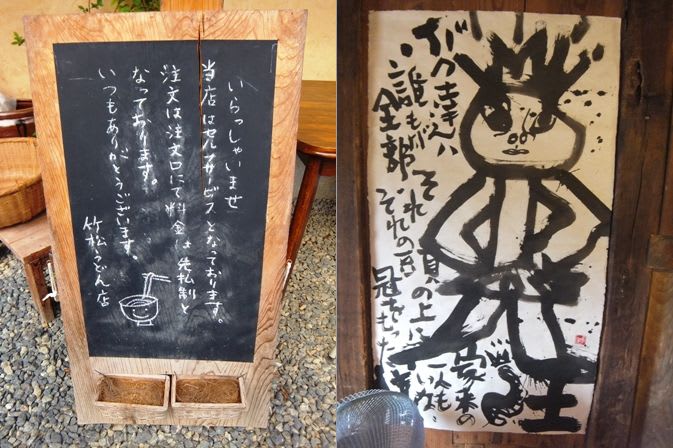 いらっしゃいませ
当店はセルフサービスとなっております。
注文は注文口にて料金は先払制と
なっております。
いつもありがとうございます。
竹松うどん店
誰もが
それ
頭の上に
全部
それぞれの
冠をもった
王
家来の
一人も
いない